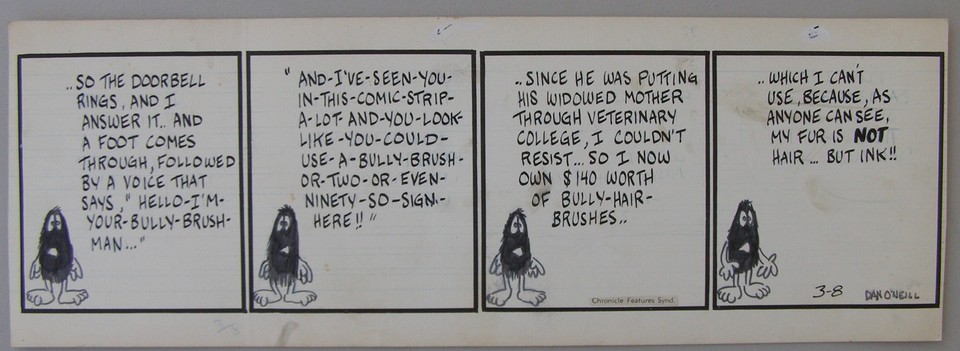 ..SO THE DOORBELL
RINGS, AND I
ANSWER IT.. AND
A FOOT COMES
THROUGH, FOLLOWED
BY A VOICE THAT
SAYS, "HELLO-I'M-
YOUR-BULLY-BRUSH-
MAN..."
"AND-I'VE-SEEN-YOU-
IN-THIS-COMIC-STRIP-
A-LOT-AND-YOU-LOOK-
LIKE-YOU-COULD-
USE-A-BULLY-BRUSH-
OR-TWO-OR-EVEN-
NINETY-SO-SIGN-
HERE!!"
..SINCE HE WAS PUTTING
HIS WIDOWED MOTHER
THROUGH VETERINARY
COLLEGE, I COULDN'T
RESIST...SO I NOW
OWN $140 WORTH
OF BULLY-HAIR-
BRUSHES..
Chronicle Features Synd.
..WHICH I CAN'T
USE, BECAUSE, AS
ANYONE CAN SEE,
MY FUR IS NOT
HAIR... BUT INK!!
3-8
DAN O'NEILL